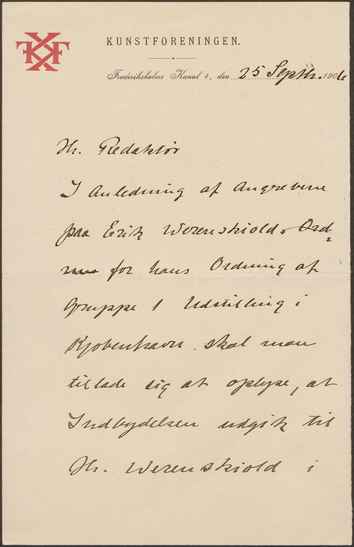 KUNSTFORENINGEN.
Frederiksholms Kanal 4, den 25 Septbr. 1906
Hr. Redaktør
I Anledning af Angrebene
paa Erik Werenskiold
for hans Ordning af
Gruppe 1 Udstilling i
Kjøbenhavn skal man
tillade sig at oplyse, at
Indbydelsen udgik til
Hr. Werenskiold i